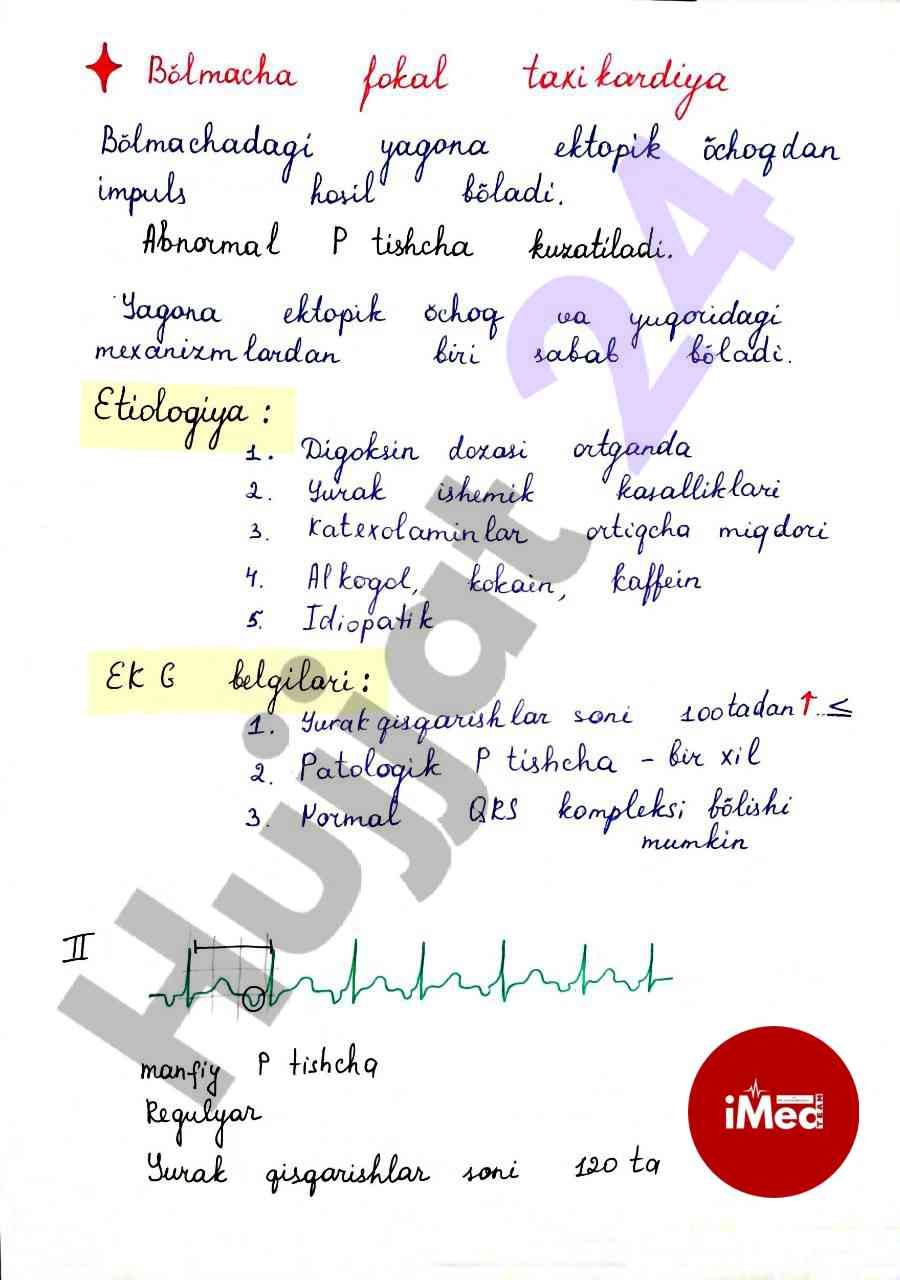 Bŏlmacha fokal taxikardiya
Bŏlmachadagi yagona ektopik ŏchoqdan
impuls hosil bŏladi.
Abnormal P tishcha kuzatiladi.
Yagona ektopik ŏchoq va yuqoridagi
mexanizmlardan biri sabab bŏladi.
Etiologiya :
1. Digoksin dozasi ortganda
2. Yurak ishemik kasalliklari
3. Katexolaminlar ortiqcha miqdori
4. Alkogol, kokain, kaffein
5. Idiopatik
EKG belgilari :
1. Yurak qisqarishlar soni 100 tadan ↑..≤
2. Patologik P tishcha - bir xil
3. Normal QRS kompleksi bŏlishi
mumkin
II
manfiy P tishcha
Regulyar
Yurak qisqarishlar soni 120 ta
Hujjat 24
iMed
TEAM